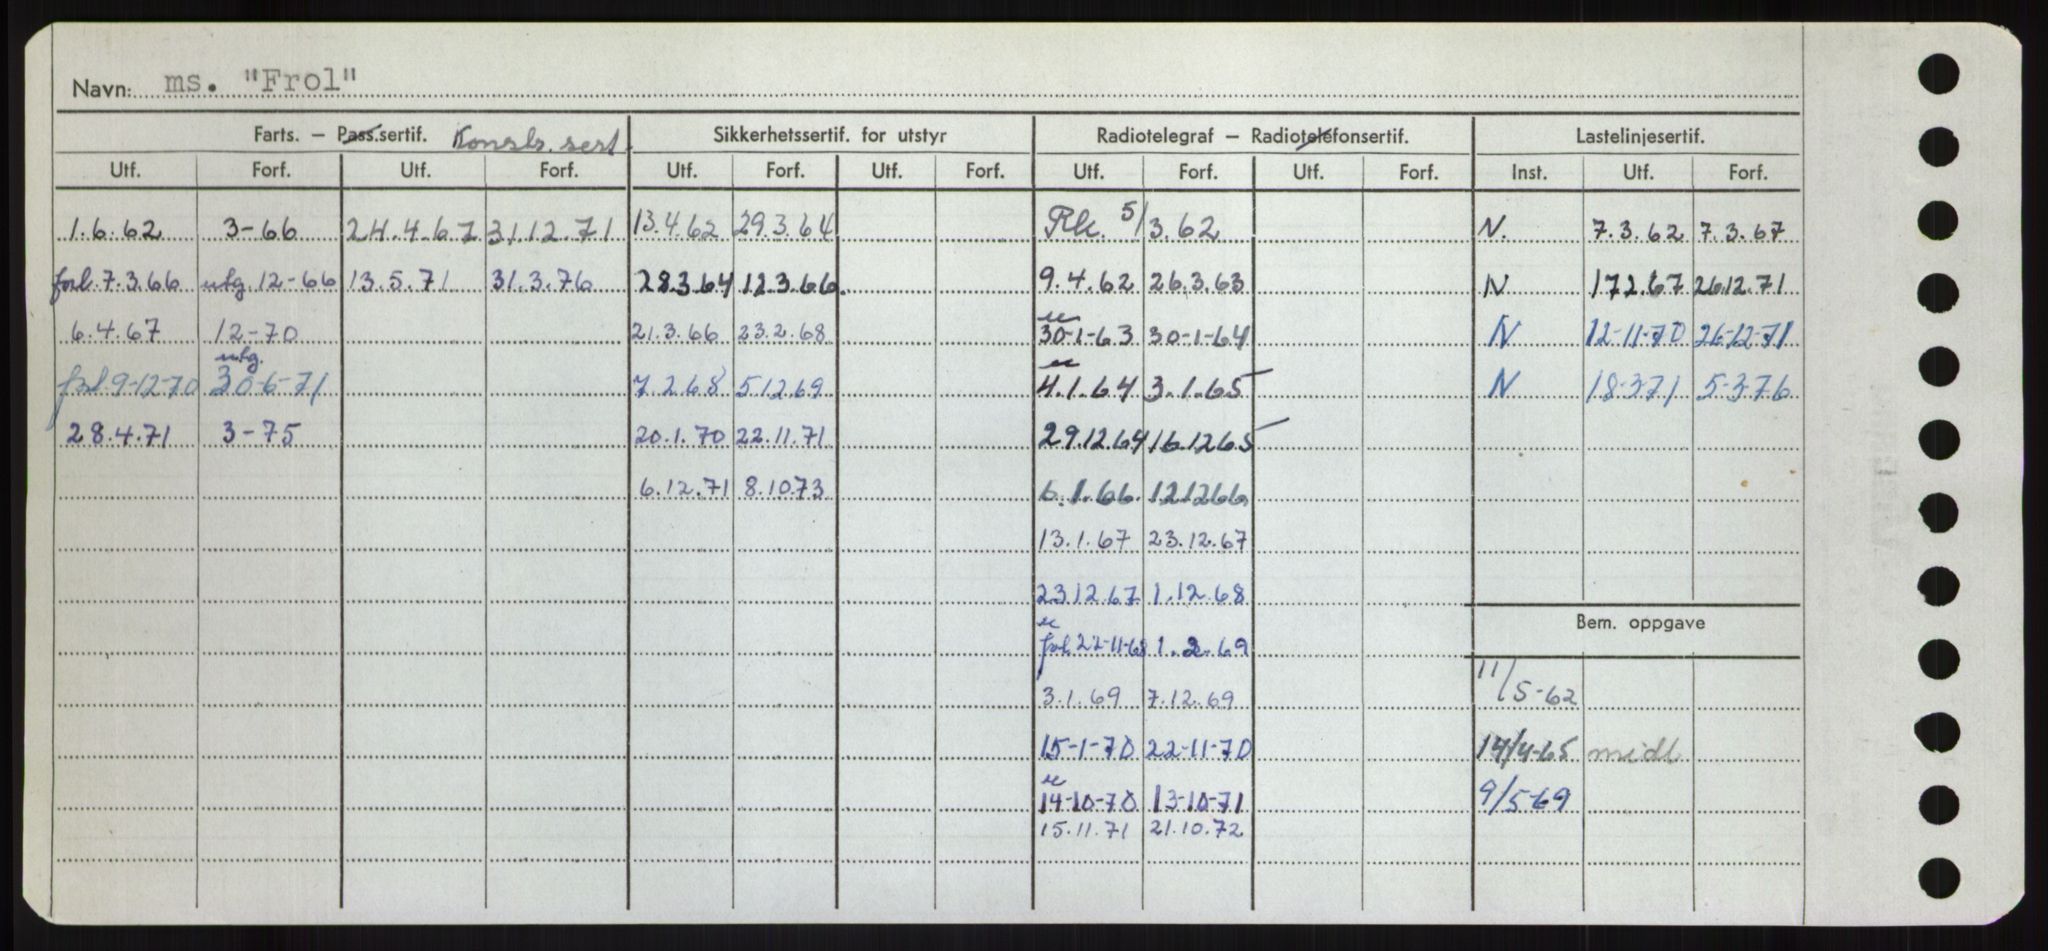 Navn: ms. "Frol"
Farts. – Pass.sertif. Konstr. sert. Sikkerhetssertif. for utstyr Radiotelegraf – Radiotelefonsertif. Lastelinjesertif.
Utf. Forf. Utf. Forf. Utf. Forf. Utf. Forf. Utf. Forf. Utf. Forf. Inst. Utf. Forf.
1.6.62 3-66 24.4.67 31.12.71 13.4.62 29.3.64 Rk. 5/3.62 N. 7.3.62 7.3.67
forl. 7.3.66 utg. 12-66 13.5.71 31.3.76 28.3.64 12.3.66. 9.4.62 26.3.63 N 17.2.67 26.12.71
6.4.67 12-70 21.3.66 23.2.68 30-1-63 30-1-64 N 12-11-70 26-12-71
utg.
forl. 9-12-70 30-6-71 7.2.68 5.12.69 4.1.64 3.1.65 N 18-3-71 5-3-76
28.4.71 3-75 20.1.70 22.11.71 29.12.64 16.12.65
6.12.71 8.10.73 6.1.66. 12.12.66
13.1.67 23.12.67
23.12.67 1.12.68
Bem. oppgave
forl 22-11-68 1.2.69
3.1.69 7.12.69 11/5-62
15-1-70 22-11-70 14/4-65 midl
14-10-70 13-10-71 9/5-69
15.11.71 21.10.72